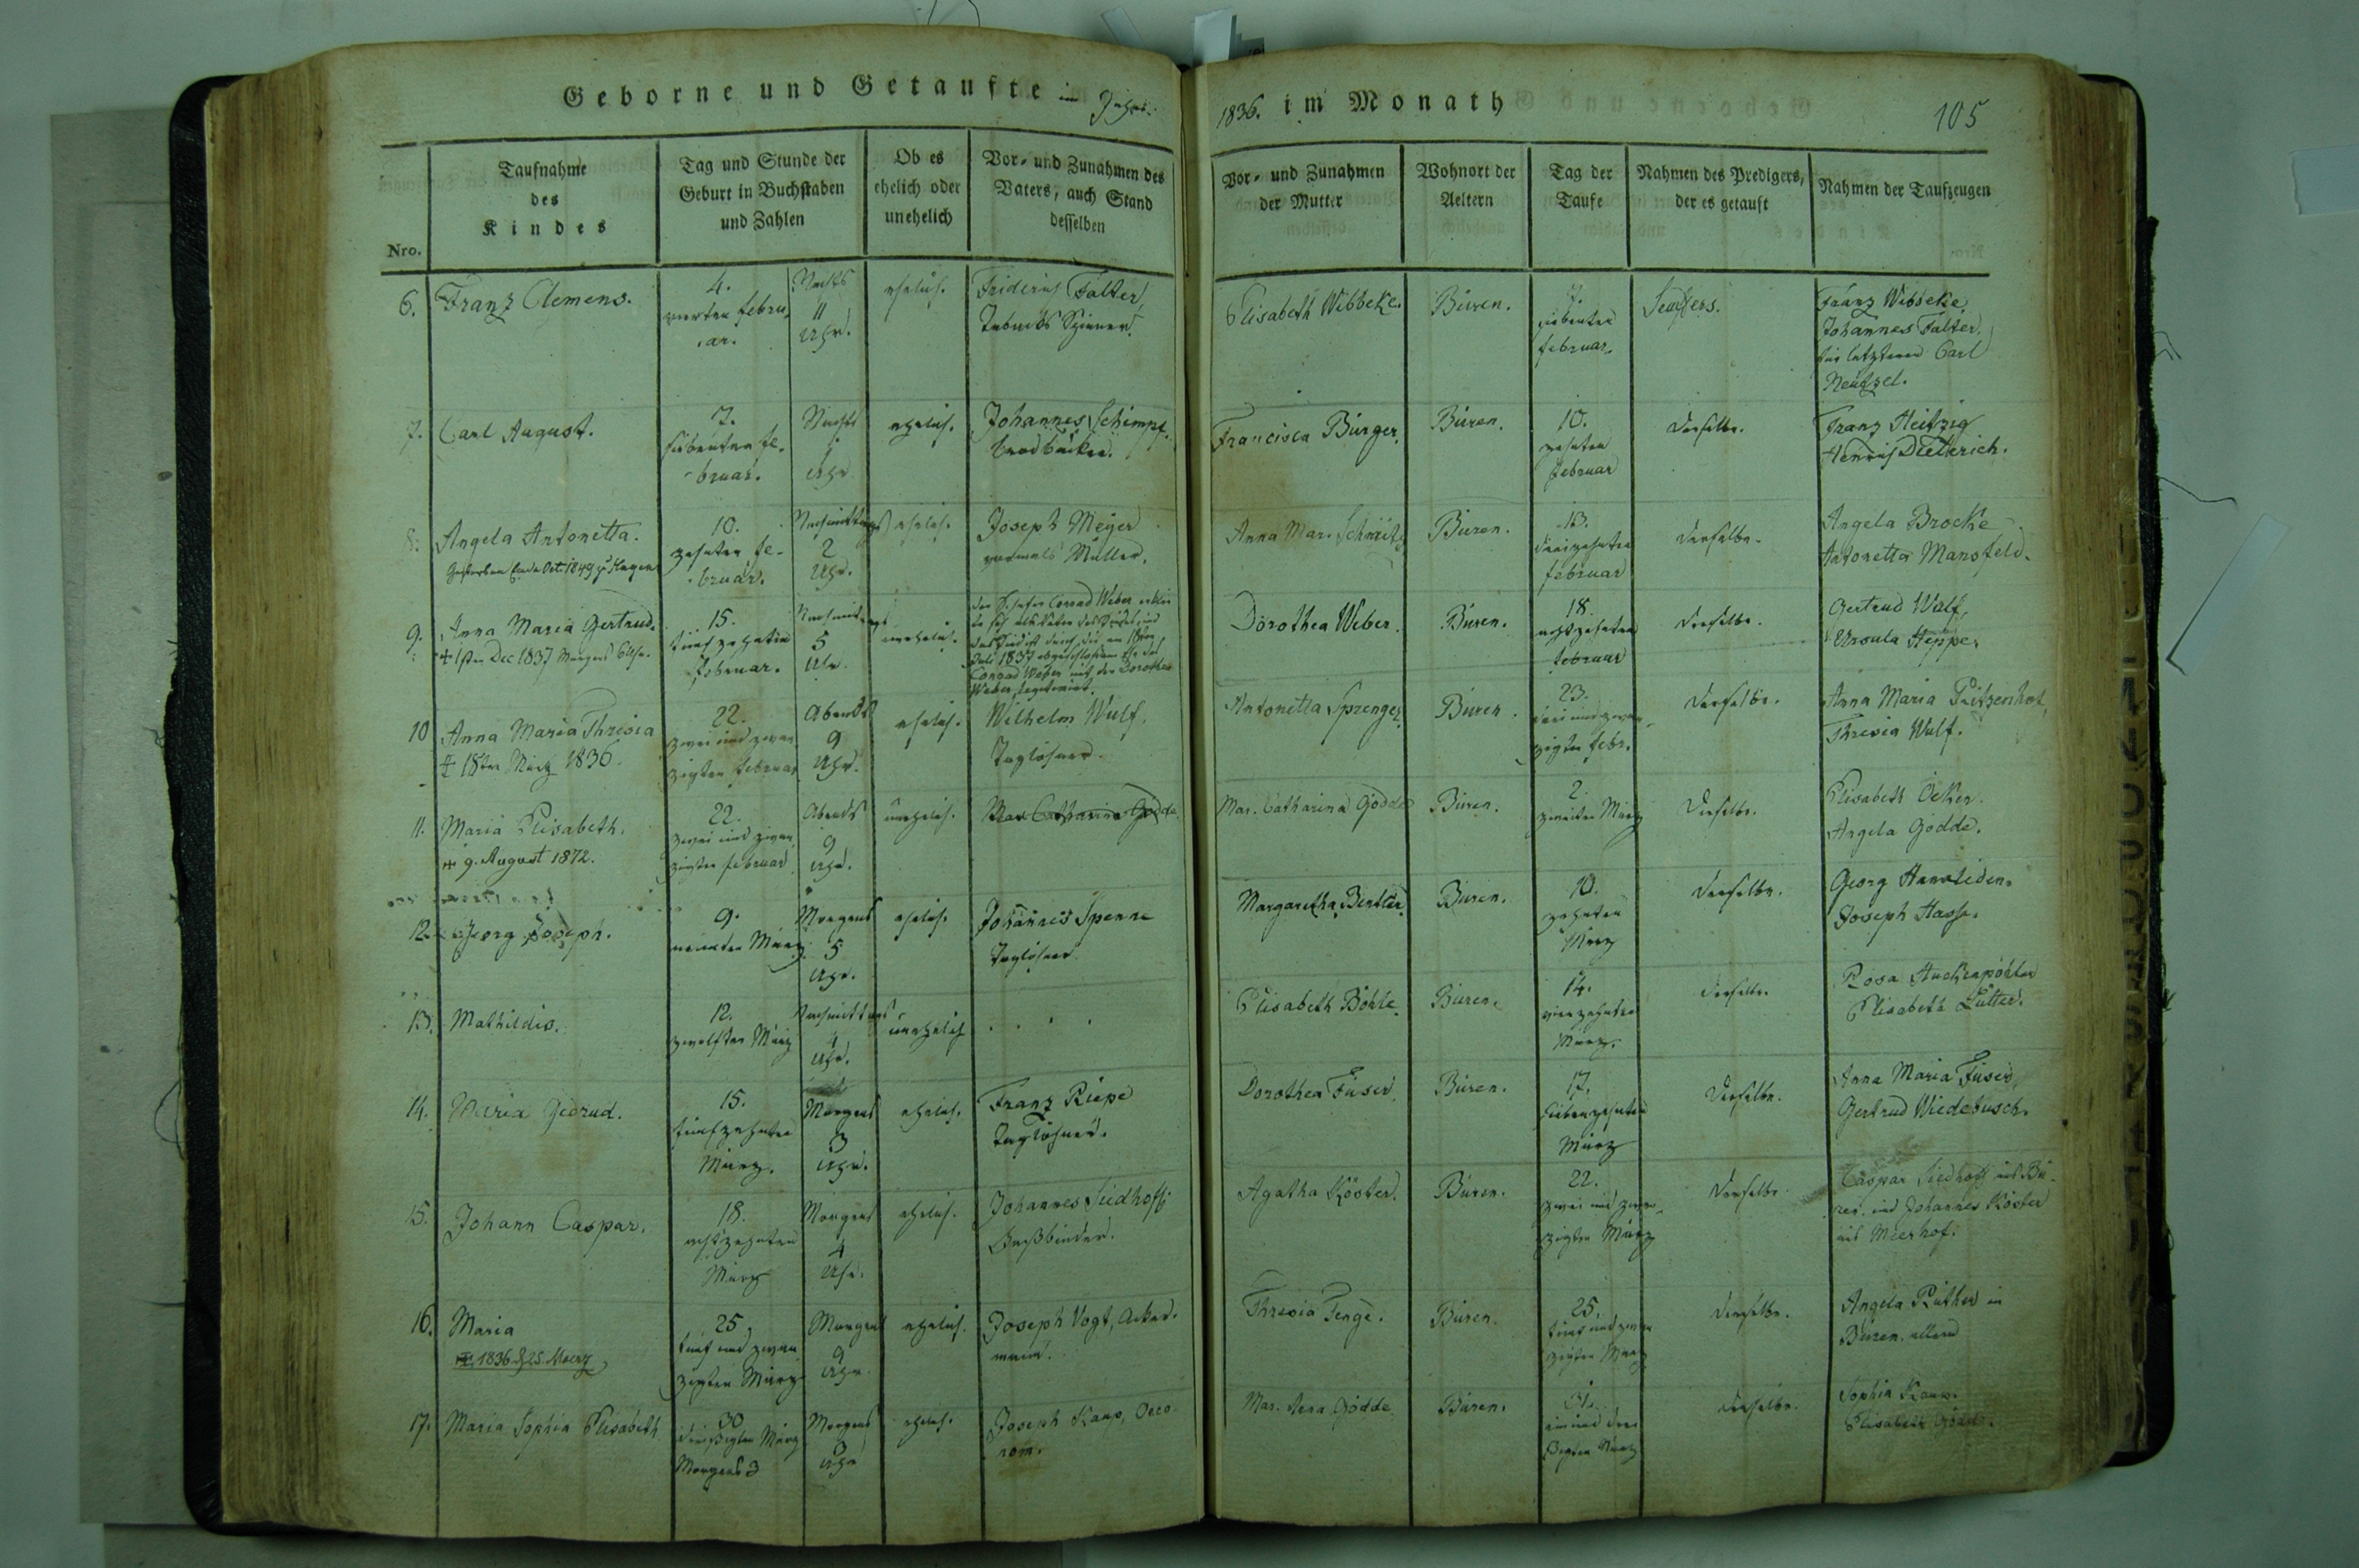 Geborne und Getaufte im Jahre
1836. im Monath
105
Nro.
Taufnahme
des
Kindes
Tag und Stunde der
Geburt in Buchstaben
und Zahlen
Ob es
ehelich oder
unehelich
Vor- und Zunahmen des
Vaters, auch Stand
desselben
Vor- und Zunahmen
der Mutter
Wohnort der
Aeltern
Tag der
Taufe
Nahmen des Predigers,
der es getauft
Nahmen der Taufzeugen
6.
Franz Clemens.
4.
vierten Febru
ar.
Nachts
11
Uhr.
ehelich.
Friderich Falter,
Tabacks Spinner.
Elisabeth Wibbeke.
Büren.
7.
siebenten
Februar.
Franz Wibbeke,
Johannes Falter,
für letzteren Carl
Neutzel.
7.
Carl August.
7.
siebenten Fe-
bruar.
Nachts
1
Uhr
ehelich.
Johannes Schimpf.
Brodbäcker.
Francisca Bürger.
Büren.
10.
zehnten
Februar
Derselbe.
Franz Heitzig
Henrich Dieterich.
8.
Angela Antonetta.
Gestorben Ende Oct 1849 zu Hagen
10.
zehnten Fe-
bruar.
Nachmittags
2
Uhr.
ehelich.
Joseph Meyer
vormals Müller.
Anna Mar. Schmitz
Büren.
13.
dreizehnten
Februar
Derselbe.
Angela Brocke
Antonetta Mansfeld.
9.
Anna Maria Gertrud.
+ 1sten Dec 1837 Morgens 6 Uhr.
15.
fünfzehnten
Februar.
Nachmittags
5
Uhr.
unehelich.
Der Conrad Weber erklär
te sich als Vater des Kindes, und
das Kind ist durch die am 18ten
Juli 1837 abgeschlossene Ehe des
Conrad Weber mit der Dorothea
Weber legitimirt.
Dorothea Weber.
Büren.
18.
achtzehnten
Februar
Derselbe.
Gertrud Wulf,
Ursula Heppe.
10
Anna Maria Thresia
+ 18ten März 1836.
22.
zwei und zwan
zigsten Februar
Abends
9
Uhr.
ehelich.
Wilhelm Wulf.
Taglöhner.
Antonetta Sprenger.
Büren.
23.
drei und zwan-
zigten Febr.
Derselbe.
Anna Maria
Thresia Wulf.
11.
Maria Elisabeth.
+ 9. August 1872.
22.
zwei und zwan
zigsten Februar
Abends
9
Uhr.
unehelich.
Mar Catharina Godde
Mar. Catharina Godde
Büren.
2.
zweiten März
Derselbe.
Elisabeth
Angela Godde.
12.
Georg Joseph.
9.
neunten März
Morgens
5
Uhr.
ehelich.
Johannes Spenne
Taglöhner
Margaretha
Büren.
10.
zehnten
März
Derselbe.
Georg
Joseph Hasse.
13.
Mathildis.
12.
zwölften März
Nachmittags
4
Uhr.
unehelich
. . . .
Elisabeth Böhle.
Büren.
14.
vierzehnten
März.
Derselbe.
Rosa
Elisabeth
14.
Maria Gedrud.
15.
fünfzehnten
März.
Morgens
3
Uhr.
ehelich.
Franz Riepe
Taglöhner.
Dorothea Füser.
Büren.
17.
siebenzehnten
März
Derselbe.
Anna Maria Füser,
Gertrud Wiedebusch.
15.
Johann Caspar.
18.
achtzehnten
März
Morgens
4
Uhr.
ehelich.
Johannes Siedhoff.
Faßbinder.
Agatha Köster.
Büren.
22.
zwei und zwan-
zigten März
Derselbe.
Caspar Siedhoff aus Bü-
ren und Johannes Köster
aus Meerhof.
16.
Maria
+ 1836 d 25. Maerz
25.
fünf und zwan
zigsten März
Morgens
9
Uhr
ehelich.
Joseph Vogt, Acker-
mann.
Thresia Tenge.
Büren.
25.
fünf und zwan
zigsten März
Derselbe.
Angela Rüther in
Büren. allein
17.
Maria Sophia Elisabeth
30
dreißigten März
Morgens 3
Morgens
3
Uhr
ehelich.
Joseph Kaup, Oeco-
nom.
Mar. Anna Godde
Büren.
31.
ein und drei
ßigten März
Derselbe.
Sophia Kaup.
Elisabeth Godde.